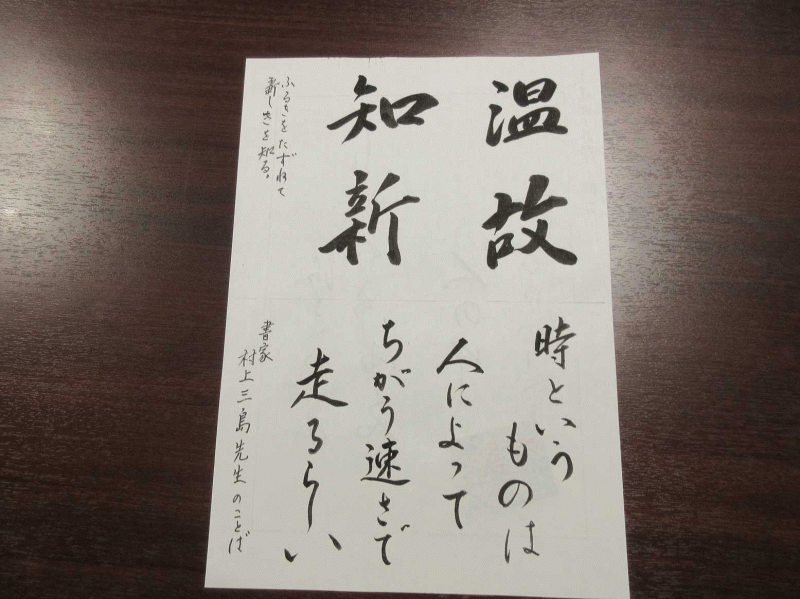 温故
知新
ふるきをたずねて
新しきを知る。
時という
ものは
人によって
ちがう速さで
走るらしい
書家
村上三島先生のことば